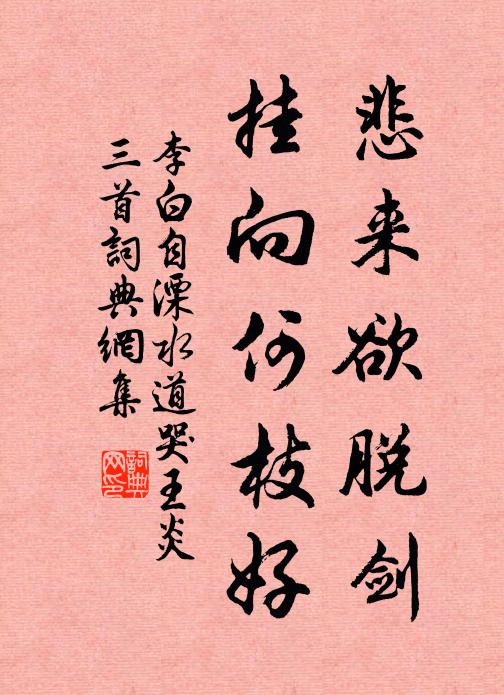 悲来欲脱剑
挂向何枝好
李白自溧水道哭王炎
三首詞典網集
詞典網印